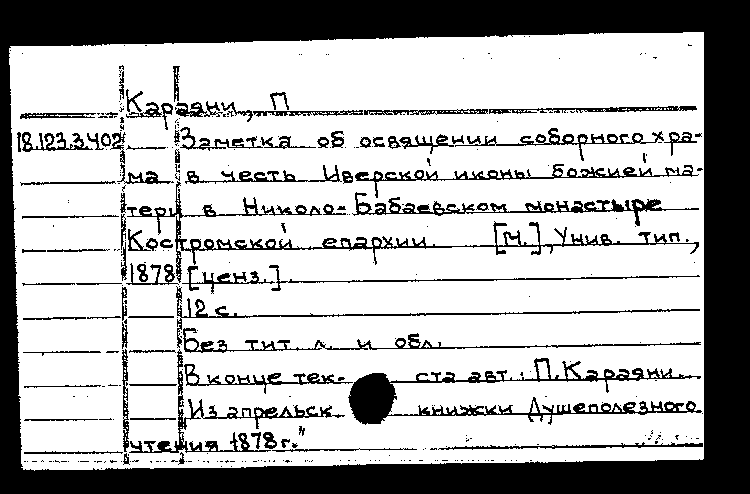 Караяни, П
18.123.3.402. Заметка об освящении соборного хра-
ма в честь Иверской иконы божией ма-
тери в Николо-Бабаевском монастыре
Костромской епархии. [М.], Унив. тип.,
1878 [ценз.].
12 с.
Без тит. л. и обл.
В конце тек- ста авт.: П. Караяни.
"Из апрельск. книжки Душеполезного
чтения 1878 г."